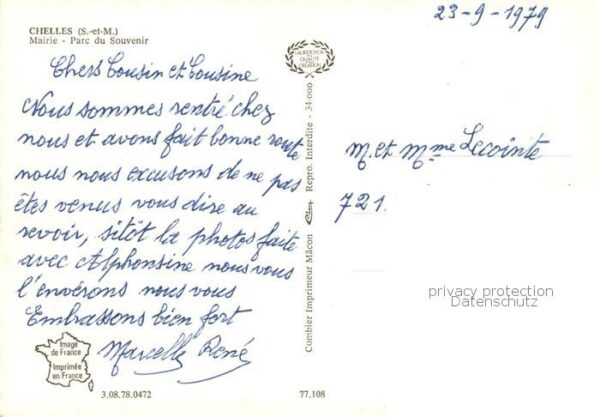 CHELLES (S.-et-M.)
Mairie - Parc du Souvenir
23-9-1979
Chers Cousin et Cousine
Nous sommes rentré chez
nous et avons fait bonne route
nous nous excusons de ne pas
êtes venus vous dire au
revoir, sitôt la photos faite
avec Alphonsine nous vous
l'enverons nous vous
Embrassons bien fort
Marcelle René
M. et Mme Lecointe
721.
Combier Imprimeur Mâcon
Repro. Interdite - 34-000
Image
de France
Imprimée
en France
3.08.78.0472
77.108
privacy protection
Datenschutz